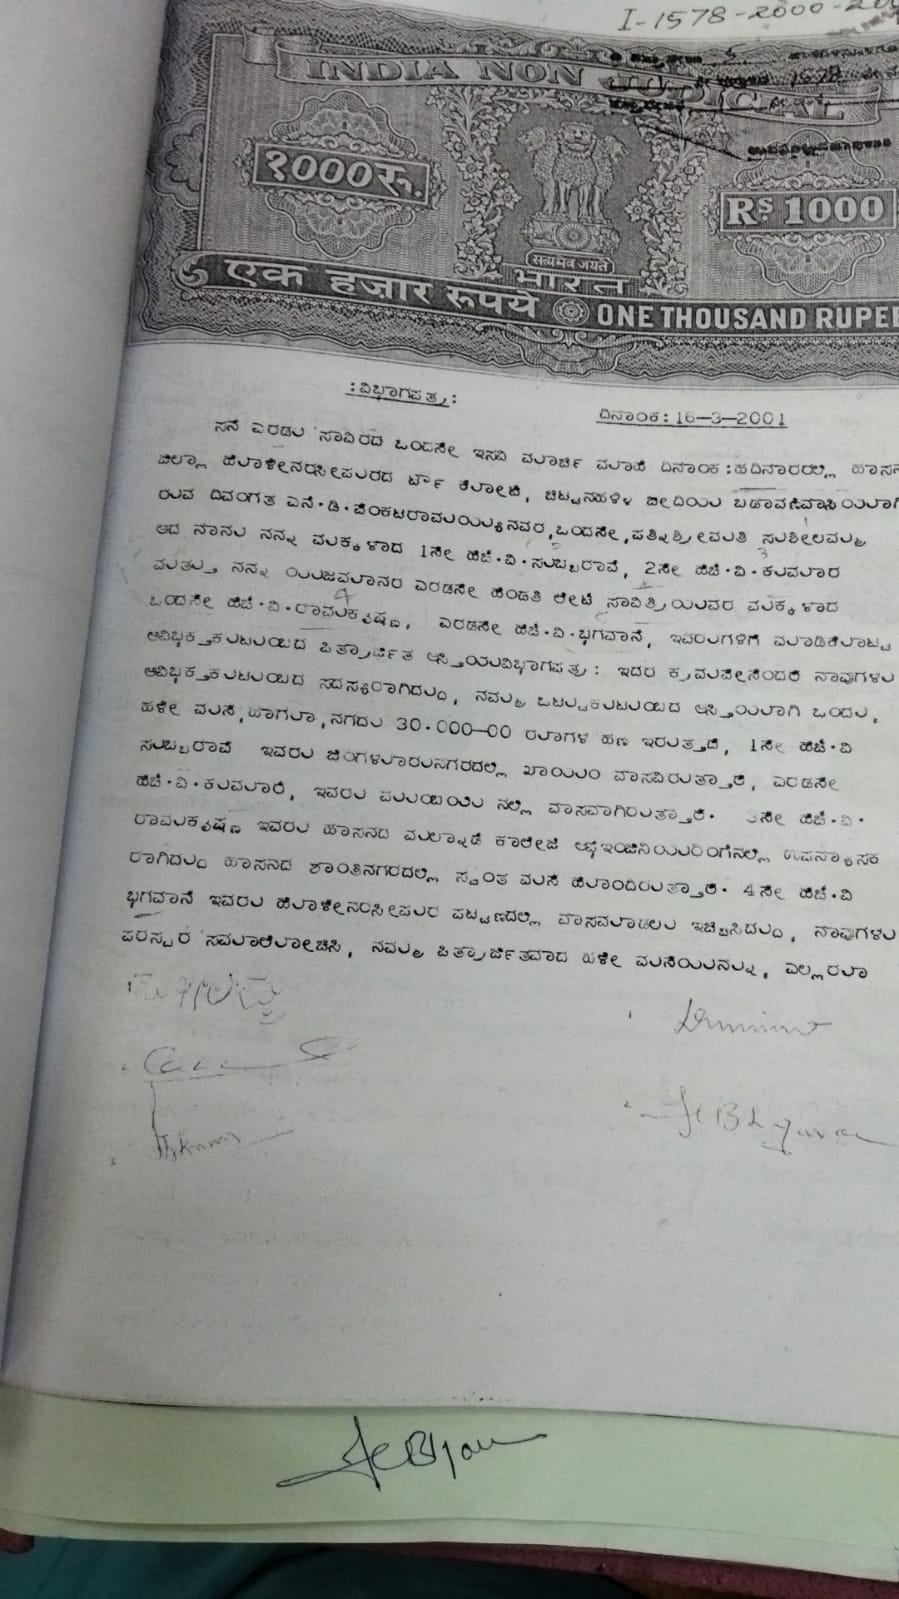 I-1578-2000-200
INDIA NON JUDICIAL
1578
१००० रु.
Rs 1000
सत्यमेव जयते
भारत
एक हज़ार रूपये
ONE THOUSAND RUPEE
:ವಿಭಾಗಪತ್ರ:
ದಿನಾಂಕ: 16-3-2001
ಸನೆ ಎರಡು ಸಾವಿರದ ಒಂದನೇ ಇಸವಿ ಮಾರ್ಚಿ ಮಾಹೆ ದಿನಾಂಕ: ಹದಿನಾರರಲ್ಲು ಹಾಸನ
ಜಿಲ್ಲಾ ಹೊಳೇನರಸೀಪುರದ ಟೌನ್ ಕೋಟೆ, ಚಿಟ್ಟನಹಳ್ಳಿ ಬೀದಿಯ
ರುವ ದಿವಂಗತ ಎನ್.ಡಿ.ವೆಂಕಟರಾಮಯ್ಯನವರ, ಒಂದನೇ, ಪತ್ನಿ ಶ್ರೀಮತಿ ಸುಶೀಲಮ್ಮ
ಆದ ನಾನು ನನ್ನ ಮಕ್ಕಳಾದ 1ನೇ ಹೆಚ್.ವಿ.ಸುಬ್ಬರಾವ್, 2ನೇ ಹೆಚ್.ವಿ.ಕುಮಾರ
ಮತ್ತು ನನ್ನ ಯಜಮಾನರ ಎರಡನೇ ಹೆಂಡತಿ ಲೇಟ್ ಸಾವಿತ್ರಿಯವರ ಮಕ್ಕಳಾದ
ಒಂದನೇ ಹೆಚ್.ವಿ.ರಾಮಕೃಷ್ಣ, ಎರಡನೇ ಹೆಚ್.ವಿ.ಭಗವಾನ್, ಇವರುಗಳಿಗೆ ಮಾಡಿಕೊಟ್ಟ
ಅವಿಭಕ್ತ ಕುಟುಂಬದ ಪಿತ್ರಾರ್ಜಿತ ಆಸ್ತಿಯ ವಿಭಾಗಪತ್ರ: ಇದರ ಕ್ರಮವೇನೆಂದರೆ ನಾವುಗಳು
ಅವಿಭಕ್ತ ಕುಟುಂಬದ ಸದಸ್ಯರಾಗಿದ್ದು, ನಮ್ಮ ಒಟ್ಟು ಕುಟುಂಬದ ಆಸ್ತಿಯಾಗಿ ಒಂದು,
ಹಳೇ ಮನೆ, ಹಾಗೂ, ನಗದು 30.000-00 ರೂಗಳ ಹಣ ಇರುತ್ತದೆ, 1ನೇ ಹೆಚ್.ವಿ
ಸುಬ್ಬರಾವ್ ಇವರು ಬೆಂಗಳೂರುನಗರದಲ್ಲಿ ಖಾಯಂ ವಾಸವಿರುತ್ತಾರೆ, ಎರಡನೇ
ಹೆಚ್.ವಿ.ಕುಮಾರ್, ಇವರು ಮುಂಬಯಿ ನಲ್ಲಿ ವಾಸವಾಗಿರುತ್ತಾರೆ. 3ನೇ ಹೆಚ್.ವಿ.
ರಾಮಕೃಷ್ಣ ಇವರು ಹಾಸನದ ಮಲ್ನಾಡ್ ಕಾಲೇಜ್ ಆಫ್ ಇಂಜಿನಿಯರಿಂಗ್‌ನಲ್ಲಿ ಉಪನ್ಯಾಸಕ
ರಾಗಿದ್ದು ಹಾಸನದ ಶಾಂತಿನಗರದಲ್ಲಿ ಸ್ವಂತ ಮನೆ ಹೊಂದಿರುತ್ತಾರೆ. 4ನೇ ಹೆಚ್.ವಿ
ಭಗವಾನ್ ಇವರು ಹೊಳೇನರಸೀಪುರ ಪಟ್ಟಣದಲ್ಲಿ ವಾಸಮಾಡಲು ಇಚ್ಛಿಸಿದ್ದು, ನಾವುಗಳು
ಪರಸ್ಪರ ಸಮಾಲೋಚಿಸಿ, ನಮ್ಮ ಪಿತ್ರಾರ್ಜಿತವಾದ ಹಳೇ ಮನೆಯನ್ನು, ಎಲ್ಲರೂ